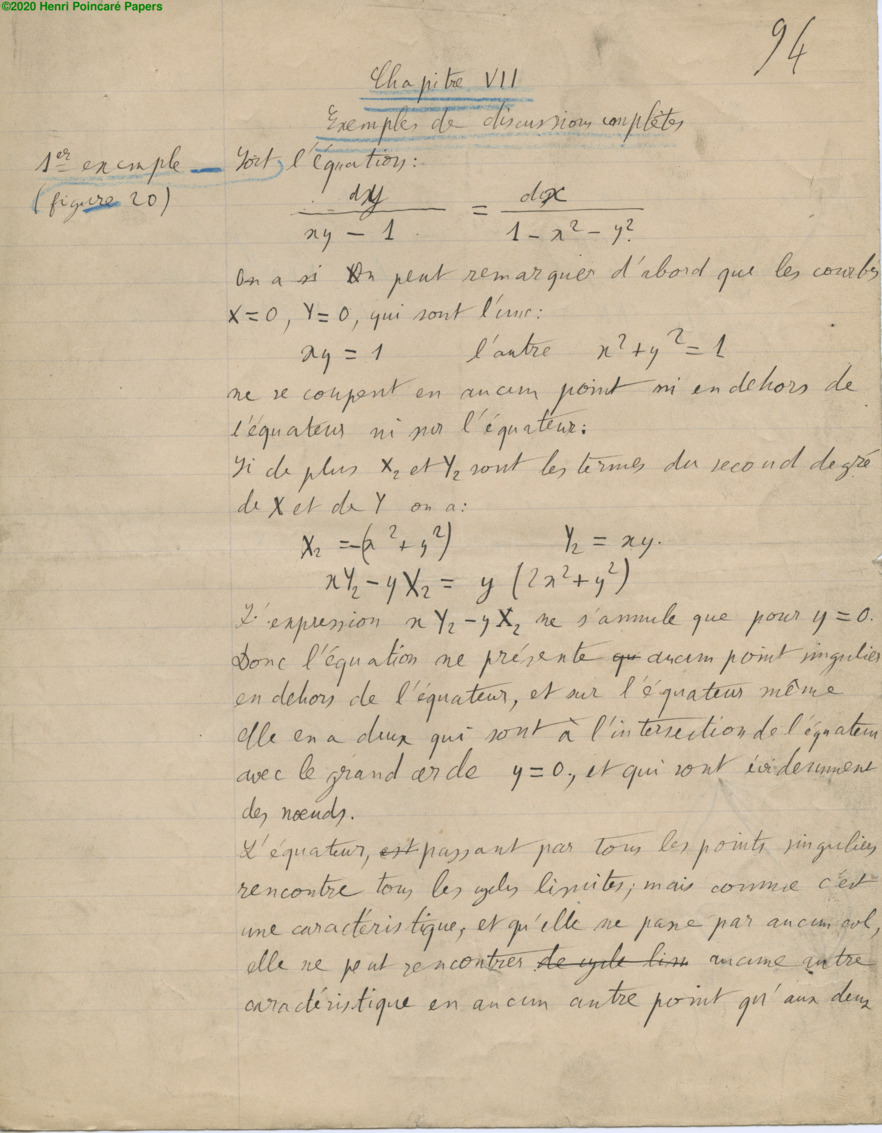 ©2020 Henri Poincaré Papers
94
Chapitre VII
Exemples de discussions complètes
1er exemple — Soit, l'équation:
(figure 20)
dy/(xy − 1) = dx/(1 − x² − y²)
On a si On peut remarquer d'abord que les courbes
X=0, Y=0, qui sont l'une:
xy = 1 l'autre x²+y²=1
ne se coupent en aucun point ni en dehors de
l'équateur ni sur l'équateur:
Si de plus X₂ et Y₂ sont les termes du second degré
de X et de Y on a:
X₂ =−(x²+y²) Y₂ = xy.
xY₂−yX₂ = y (2x²+y²)
L'expression xY₂−yX₂ ne s'annule que pour y=0.
Donc l'équation ne présente qu aucun point singulier
en dehors de l'équateur, et sur l'équateur même
elle en a deux qui sont à l'intersection de l'équateur
avec le grand cercle y=0, et qui sont évidemment
des nœuds.
L'équateur, est passant par tous les points singuliers
rencontre tous les cycles limites; mais comme c'est
une caractéristique, et qu'elle ne passe par aucun col,
elle ne peut rencontrer de cycle lim aucune autre
caractéristique en aucun autre point qu'aux deux